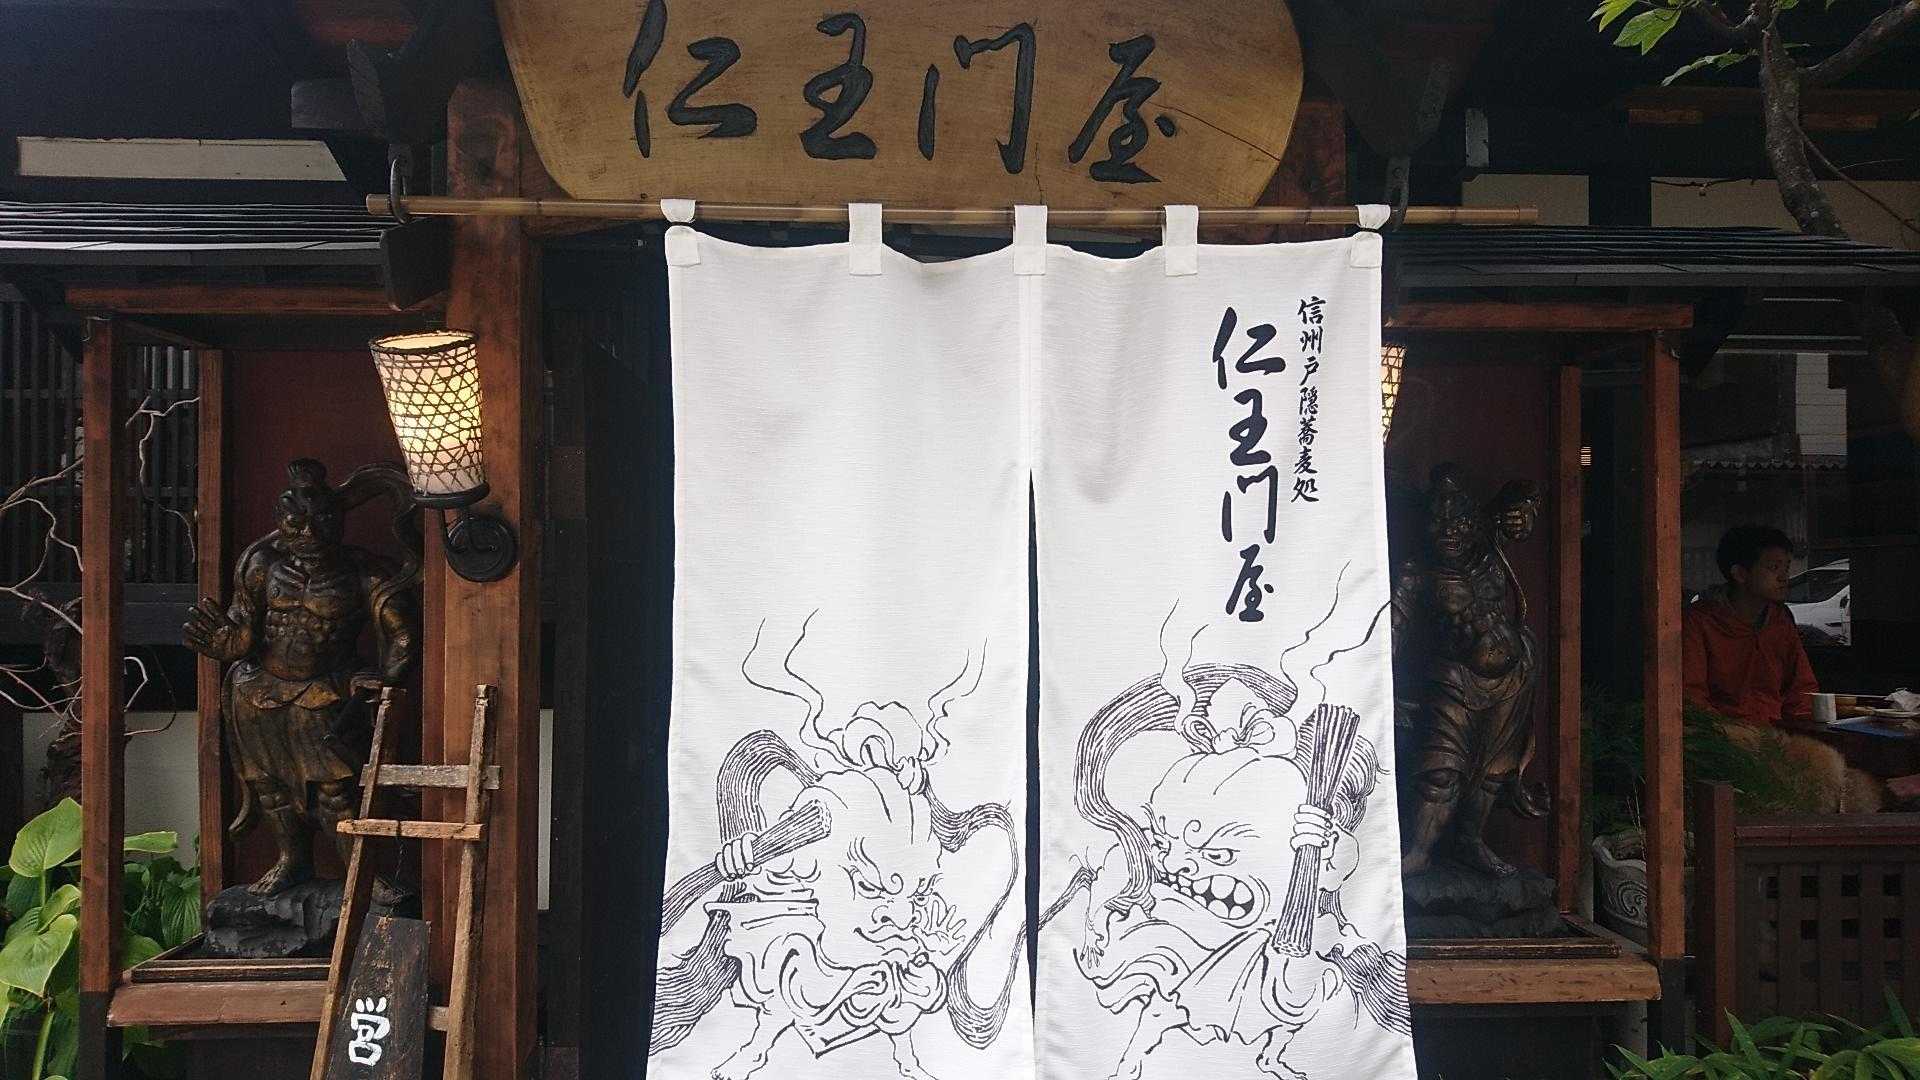 仁王門屋
信州戸隠蕎麦処
仁王門屋
営